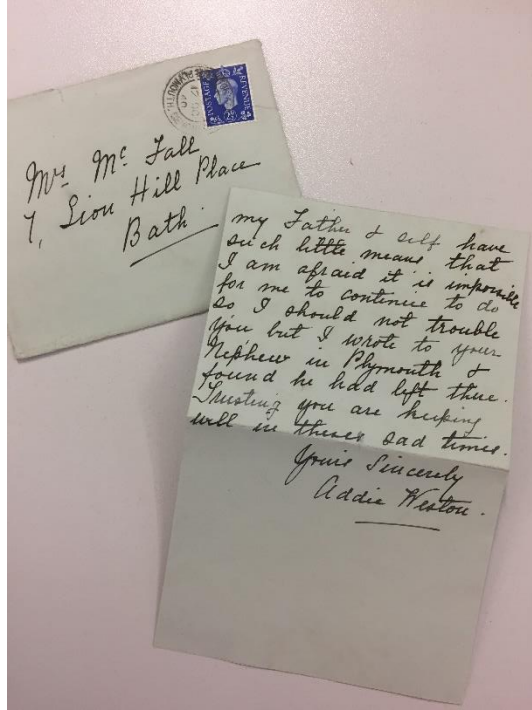 Mrs Mc Fall
7, Lion Hill Place
Bath.
POSTAGE
REVENUE
2½
PLYMOUTH
my Father & self have
such little means that
I am afraid it is impossible
for me to continue to do
so I should not trouble
you but I wrote to your
Nephew in Plymouth &
found he had left there.
Trusting you are keeping
well in these sad times.
Yours Sincerely
Addie Weston.